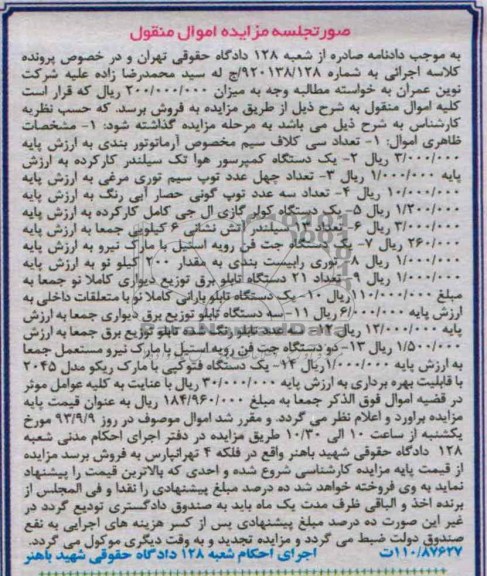 صورتجلسه مزایده اموال منقول
به موجب دادنامه صادره از شعبه ۱۲۸ دادگاه حقوقی تهران و در خصوص پرونده
کلاسه اجرائی به شماره ۹۲۰۱۳۸/۱۲۸/ج له سید محمدرضا زاده علیه شرکت
نوین عمران به خواسته مطالبه وجه به میزان ۲۰۰/۰۰۰/۰۰۰ ریال که قرار است
کلیه اموال منقول به شرح ذیل از طریق مزایده به فروش برسد. که حسب نظریه
کارشناس به شرح ذیل می باشد به مرحله مزایده گذاشته شود: ۱- مشخصات
ظاهری اموال: ۱- تعداد سی کلاف سیم مخصوص آرماتوتور بندی به ارزش پایه
۳/۰۰۰/۰۰۰ ریال ۲- یک دستگاه کمپرسور هوا تک سیلندر کارکرده به ارزش
پایه ۱/۰۰۰/۰۰۰ ریال ۳- تعداد چهل عدد توپ سیم توری مرغی به ارزش پایه
۱۰/۰۰۰/۰۰۰ ریال ۴- تعداد سه عدد توپ گونی حصار آبی رنگ به ارزش پایه
۱/۲۰۰/۰۰۰ ریال ۵- یک دستگاه کولر گازی ال جی کامل کارکرده به ارزش پایه
۳/۰۰۰/۰۰۰ ریال ۶- تعداد ۱۳ سیلندر آتش نشانی ۶ کیلویی جمعا به ارزش پایه
۲۶۰/۰۰۰ ریال ۷- یک دستگاه جت فن رویه استیل با مارک نیرو به ارزش پایه
۱/۰۰۰/۰۰۰ ریال ۸- توری رابیست بندی به مقدار ۲۰۰ کیلو نو به ارزش پایه
۱/۰۰۰/۰۰۰ ریال ۹- تعداد ۲۱ دستگاه تابلو برق توزیع دیواری کاملا نو جمعا به
مبلغ ۱۱۰/۰۰۰/۰۰۰ ریال ۱۰- یک دستگاه تابلو بارانی کاملا نو با متعلقات داخلی به
ارزش پایه ۶/۰۰۰/۰۰۰ ریال ۱۱- سه دستگاه تابلو توزیع برق دیواری جمعا به ارزش
پایه ۱۲/۰۰۰/۰۰۰ ریال ۱۲- عدد تابلو رنگ شده تابلو توزیع برق جمعا به ارزش
۱/۵۰۰/۰۰۰ ریال ۱۳- دو دستگاه جت فن رویه استیل با مارک نیرو مستعمل جمعا
به ارزش پایه ۱/۰۰۰/۰۰۰ ریال ۱۴- یک دستگاه فتوکپی با مارک ریکو مدل ۲۰۴۵
با قابلیت بهره برداری به ارزش پایه ۳۰/۰۰۰/۰۰۰ ریال با عنایت به کلیه عوامل موثر
در قضیه اموال فوق الذکر جمعا به مبلغ ۱۸۴/۹۶۰/۰۰۰ ریال به عنوان قیمت پایه
مزایده براورد و اعلام نظر می گردد. و مقرر شد اموال موصوف در روز ۹۳/۹/۹ مورخ
یکشنبه از ساعت ۱۰ الی ۱۰/۳۰ طریق مزایده در دفتر اجرای احکام مدنی شعبه
۱۲۸ دادگاه حقوقی شهید باهنر واقع در فلکه ۴ تهرانپارس به فروش برسد مزایده
از قیمت پایه مزایده کارشناسی شروع شده و احدی که بالاترین قیمت را پیشنهاد
نماید به وی فروخته خواهد شد ده درصد مبلغ پیشنهادی را نقدا و فی المجلس از
برنده اخذ و الباقی ظرف مدت یک ماه باید به صندوق دادگستری تودیع گردد در
غیر این صورت ده درصد مبلغ پیشنهادی پس از کسر هزینه های اجرایی به نفع
صندوق دولت ضبط می گردد و مزایده تجدید و به وقت دیگری موکول می گردد.
۱۱۰/۸۷۶۲۷ت اجرای احکام شعبه ۱۲۸ دادگاه حقوقی شهید باهنر